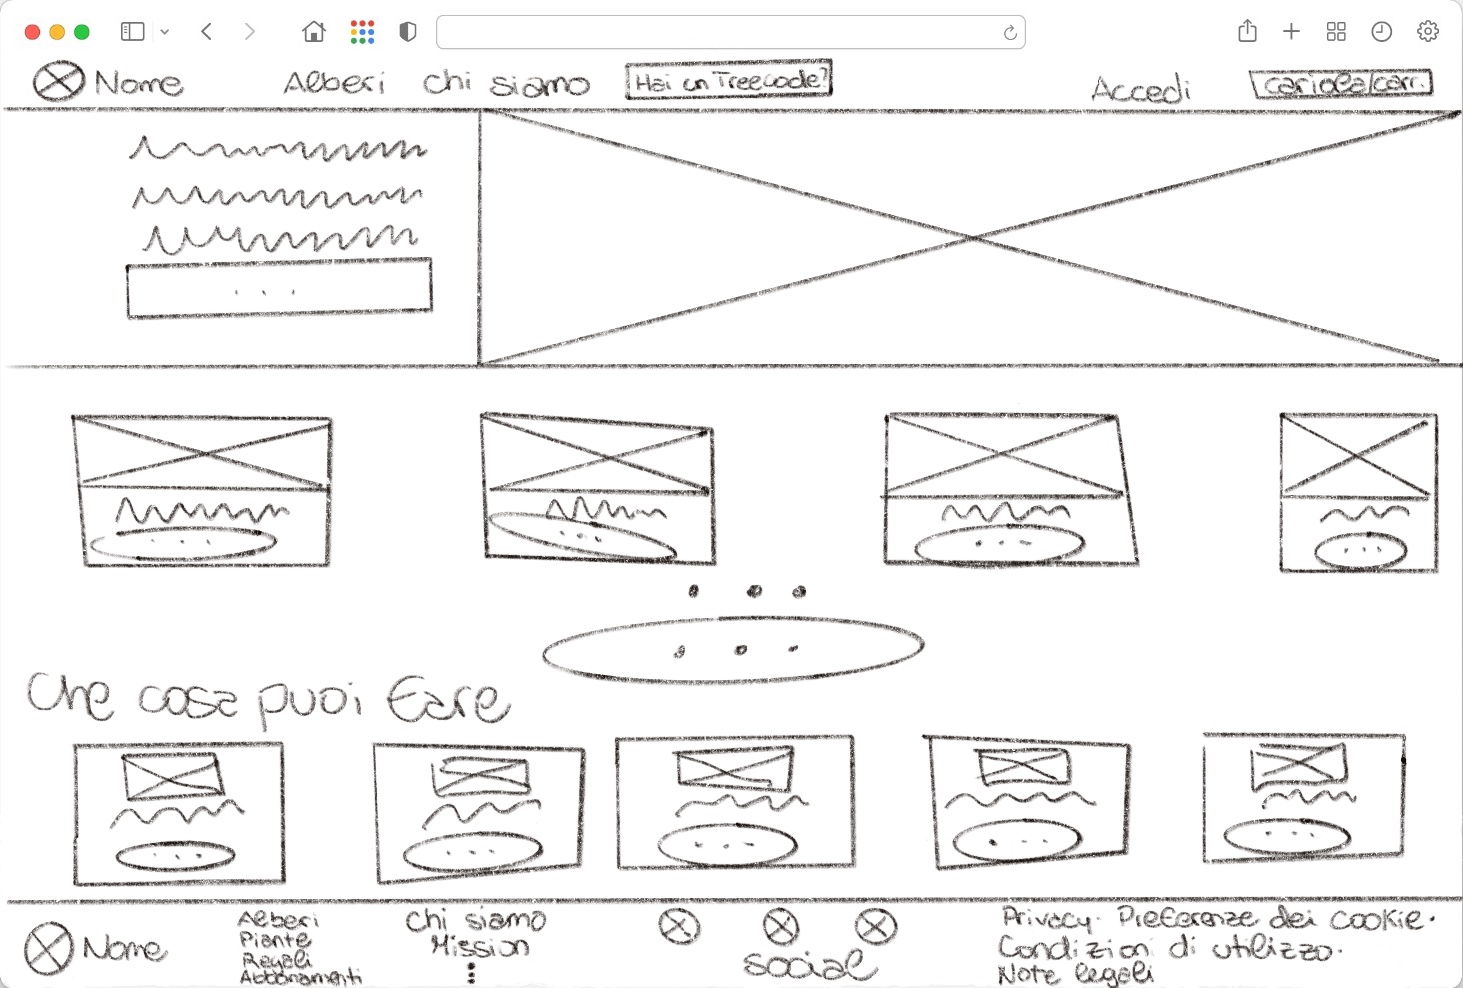 Nome Alberi Chi siamo Hai un Treecode? Accedi cariola/carr.
...
...
...
...
...
...
...
Che cosa puoi fare
...
...
...
...
...
Nome
Alberi
Piante
Regali
Abbonamenti
Chi siamo
Mission
social
Privacy. Preferenze dei cookie.
Condizioni di utilizzo.
Note legali